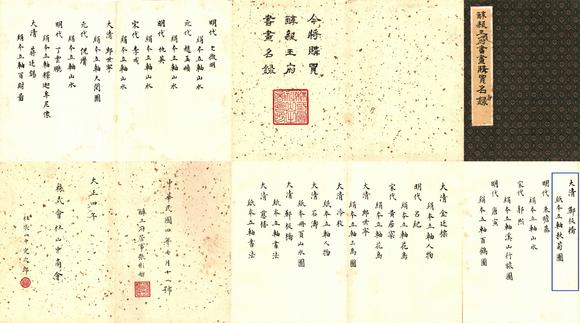 醇親王府書畫購買名錄
今將購買
醇親王府
書畫名錄
明代 文徵明
絹本立軸山水
元代 趙孟頫
絹本立軸山水
明代 仇英
絹本立軸山水
宋代 李成
絹本立軸山水
大清 郎世寧
絹本立軸大閱圖
元代 倪瓚
絹本立軸山水
明代 丁雲鵬
絹本立軸釋迦牟尼像
大清 蔣廷錫
絹本立軸百財圖
大清 鄭板橋
紙本立軸秋菊圖
明代 朱瞻基
絹本立軸山水
宋代 郭熙
絹本立軸溪山行旅圖
明代 唐寅
絹本立軸百鶴圖
大清 金廷標
絹本立軸人物
明代 呂紀
絹本立軸花鳥
宋代 黃居寀
絹本立軸花鳥
大清 郎世寧
絹本立軸三馬圖
大清 冷枚
絹本立軸人物
大清 石濤
紙本冊頁山水圖
大清 鄭板橋
紙本立軸書法
大清
紙本立軸書法
中華民國四年七月十一號
醇王府管事張彬
大正四年
株式會社山中商會
社長山中定次郎